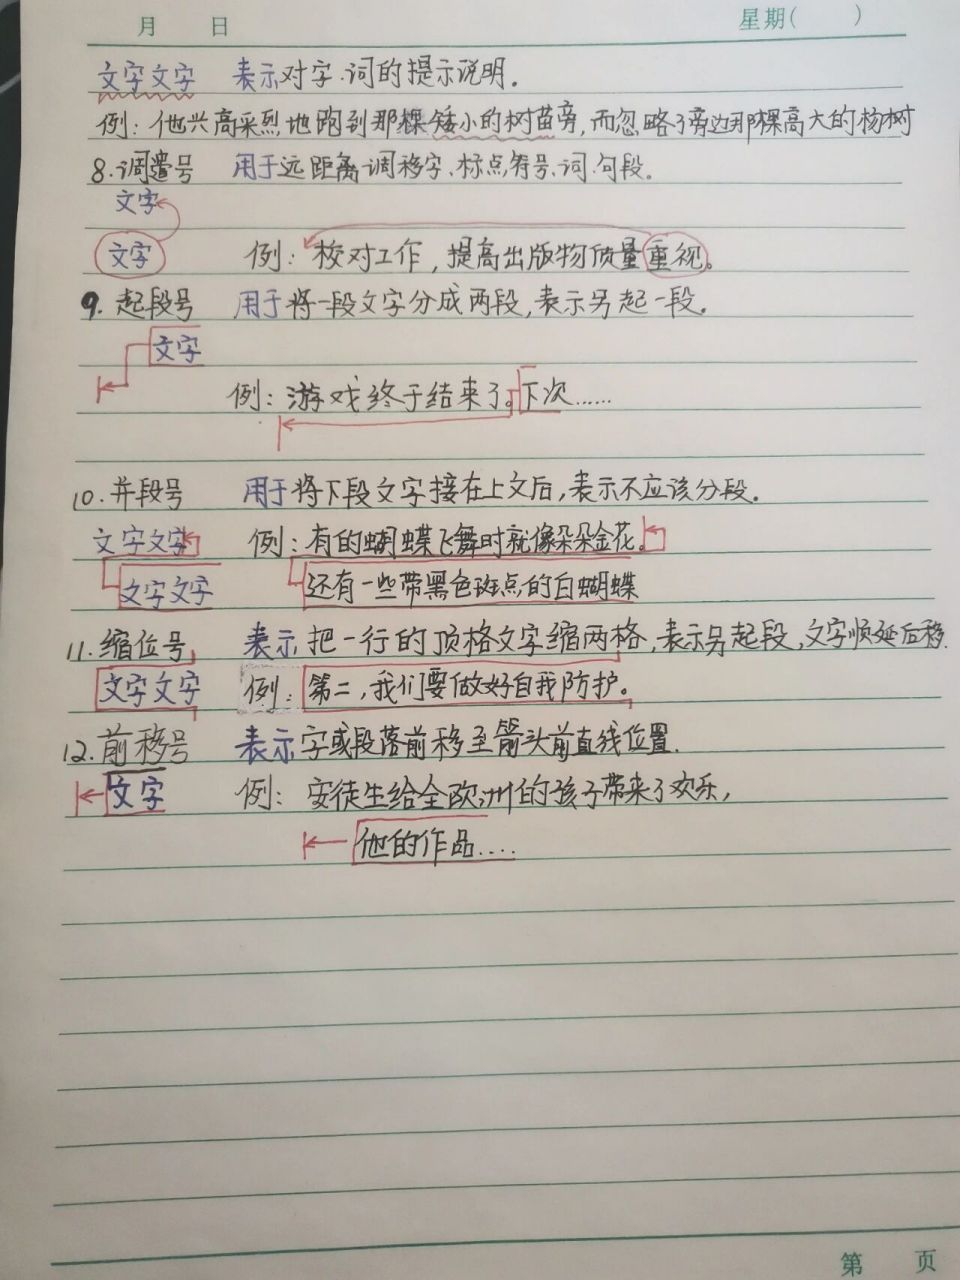 月 日 星期( )
文字文字 表示对字.词的提示说明.
例:他兴高采烈地跑到那棵矮小的树苗旁,而忽略了旁边那棵高大的杨树
8.调遣号 用于远距离调移字、标点符号、词、句段。
文字
文字 例:校对工作,提高出版物质量重视。
9.起段号 用于将一段文字分成两段,表示另起一段。
文字
例:游戏终于结束了。下次……
10.并段号 用于将下段文字接在上文后,表示不应该分段。
文字文字 例:有的蝴蝶飞舞时就像朵朵金花。
文字文字 还有一些带黑色斑点的白蝴蝶
11.缩位号 表示把一行的顶格文字缩两格,表示另起段,文字顺延后移.
文字文字 例:第二,我们要做好自我防护。
12.前移号 表示字或段落前移至箭头前直线位置.
文字 例:安徒生给全欧洲的孩子带来了欢乐,
他的作品....
第 页